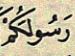 رَسُولَكُمْ